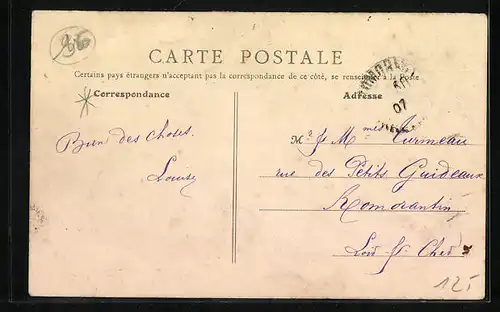 86
CARTE POSTALE
Certains pays étrangers n'acceptant pas la correspondance de ce côté, se renseigner à la Poste
Correspondance
Adresse
07
Bien des choses.
Louise
Mr & Mmes Turmeau
rue des Petits Guideaux
Romorantin
Loir & Cher
125